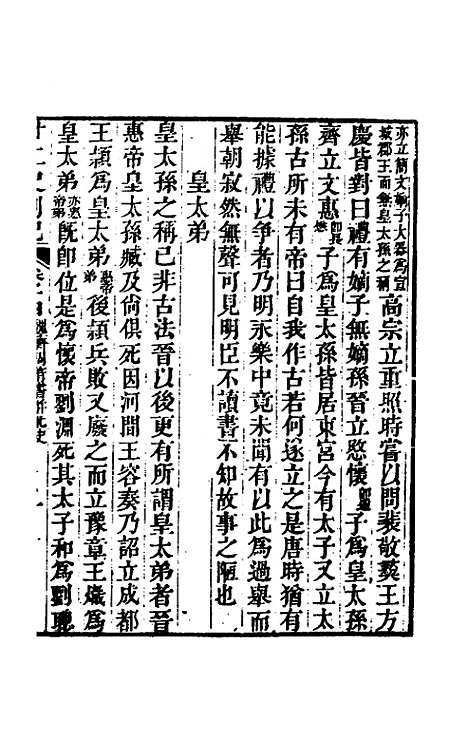 亦立簡文嫡子大器為宣
城郡王而無皇太孫之稱
高宗立重照時嘗以問裴敬彝王方
慶皆對曰禮有嫡子無嫡孫晉立愍懷
子為皇太孫
齊立文惠
子為皇太孫皆居東宮今有太子又立太
孫古所未有帝曰自我作古若何遂立之是唐時猶有
能據禮以爭者乃明永樂中竟未聞有以此為過舉而
舉朝寂然無聲可見明臣不讀書不知故事之陋也
皇太弟
皇太孫之稱已非古法晉以後更有所謂皇太弟者晉
惠帝皇太孫臧及尚俱死因河間王容奏乃詔立成都
王潁為皇太弟
惠帝
弟
後潁兵敗又廢之而立豫章王熾為
皇太弟
亦惠
帝弟
既即位是為懷帝劉淵死其太子和為劉聰